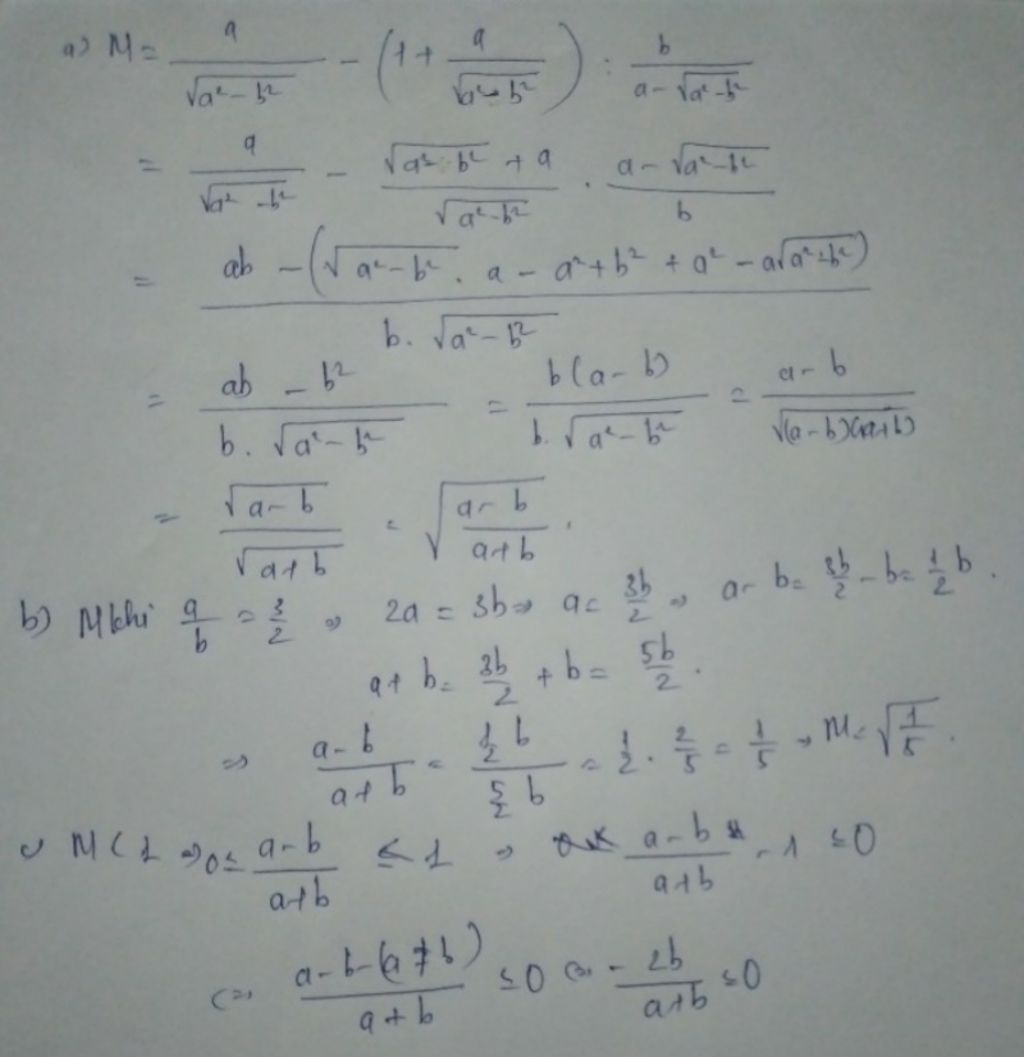 a) M = a/√(a²-b²) - (1 + a/√(a²-b²)) : b/(a-√(a²-b²))
= a/√(a²-b²) - (√(a²-b²) + a)/√(a²-b²) . (a-√(a²-b²))/b
= (ab - (√(a²-b²) . a - a² + b² + a² - a√(a²-b²)))/(b.√(a²-b²))
= (ab - b²)/(b.√(a²-b²)) = b(a-b)/(b.√(a²-b²)) = (a-b)/√((a-b)(a+b))
= √(a-b)/√(a+b) = √((a-b)/(a+b)).
b) M khi a/b = 3/2 ⇒ 2a = 3b ⇒ a = 3b/2 ⇒ a-b = 3b/2 - b = 1/2 b.
a+b = 3b/2 + b = 5b/2.
⇒ (a-b)/(a+b) = (1/2 b)/(5/2 b) = 1/2 . 2/5 = 1/5 ⇒ M = √(1/5).
c) M < 1 ⇒ 0 ≤ (a-b)/(a+b) ≤ 1 ⇒ (a-b)/(a+b) - 1 ≤ 0
⇔ (a-b-(a+b))/(a+b) ≤ 0 ⇔ -2b/(a+b) ≤ 0